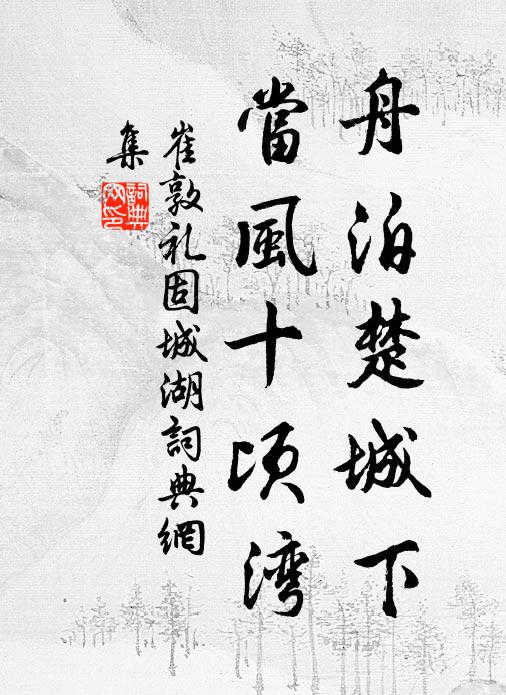 舟泊楚城下
當風十頃灣
崔敦礼固城湖詞典網
集
詞典網印